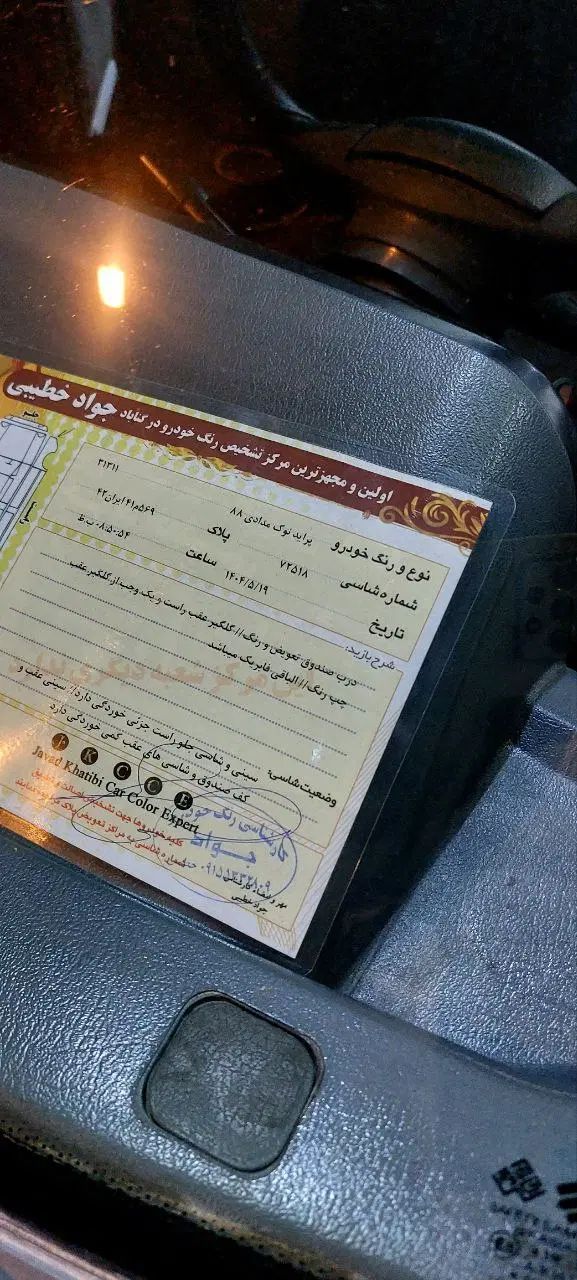 اولین و مجهزترین مرکز تشخیص رنگ خودرو در گناباد جواد خطیبی
نوع و رنگ خودرو پراید نوک مدادی ۸۸ ۳۱۳۱۱
شماره شاسی ۷۲۵۱۸ پلاک ۵۶۹م۴۱ ایران۴۲
تاریخ ۱۴۰۴/۵/۱۹ ساعت ۰۸:۵۰:۵۴ ب.ظ
شرح بازدید:
درب صندوق تعویض و رنگ// گلگیر عقب راست و یک وجب از گلگیر عقب
چپ رنگ// الباقی فابریک میباشد
این مرکز شعبه دیگری ندارد
وضعیت شاسی: سینی و شاسی جلو راست جزئی خوردگی دارد// سینی عقب و
کف صندوق و شاسی های عقب کمی خوردگی دارد
J K C C E
Javad Khatibi Car Color Expert
کارشناسی رنگ خودرو
جواد
مهر و امضاء کارشناس
جواد خطیبی